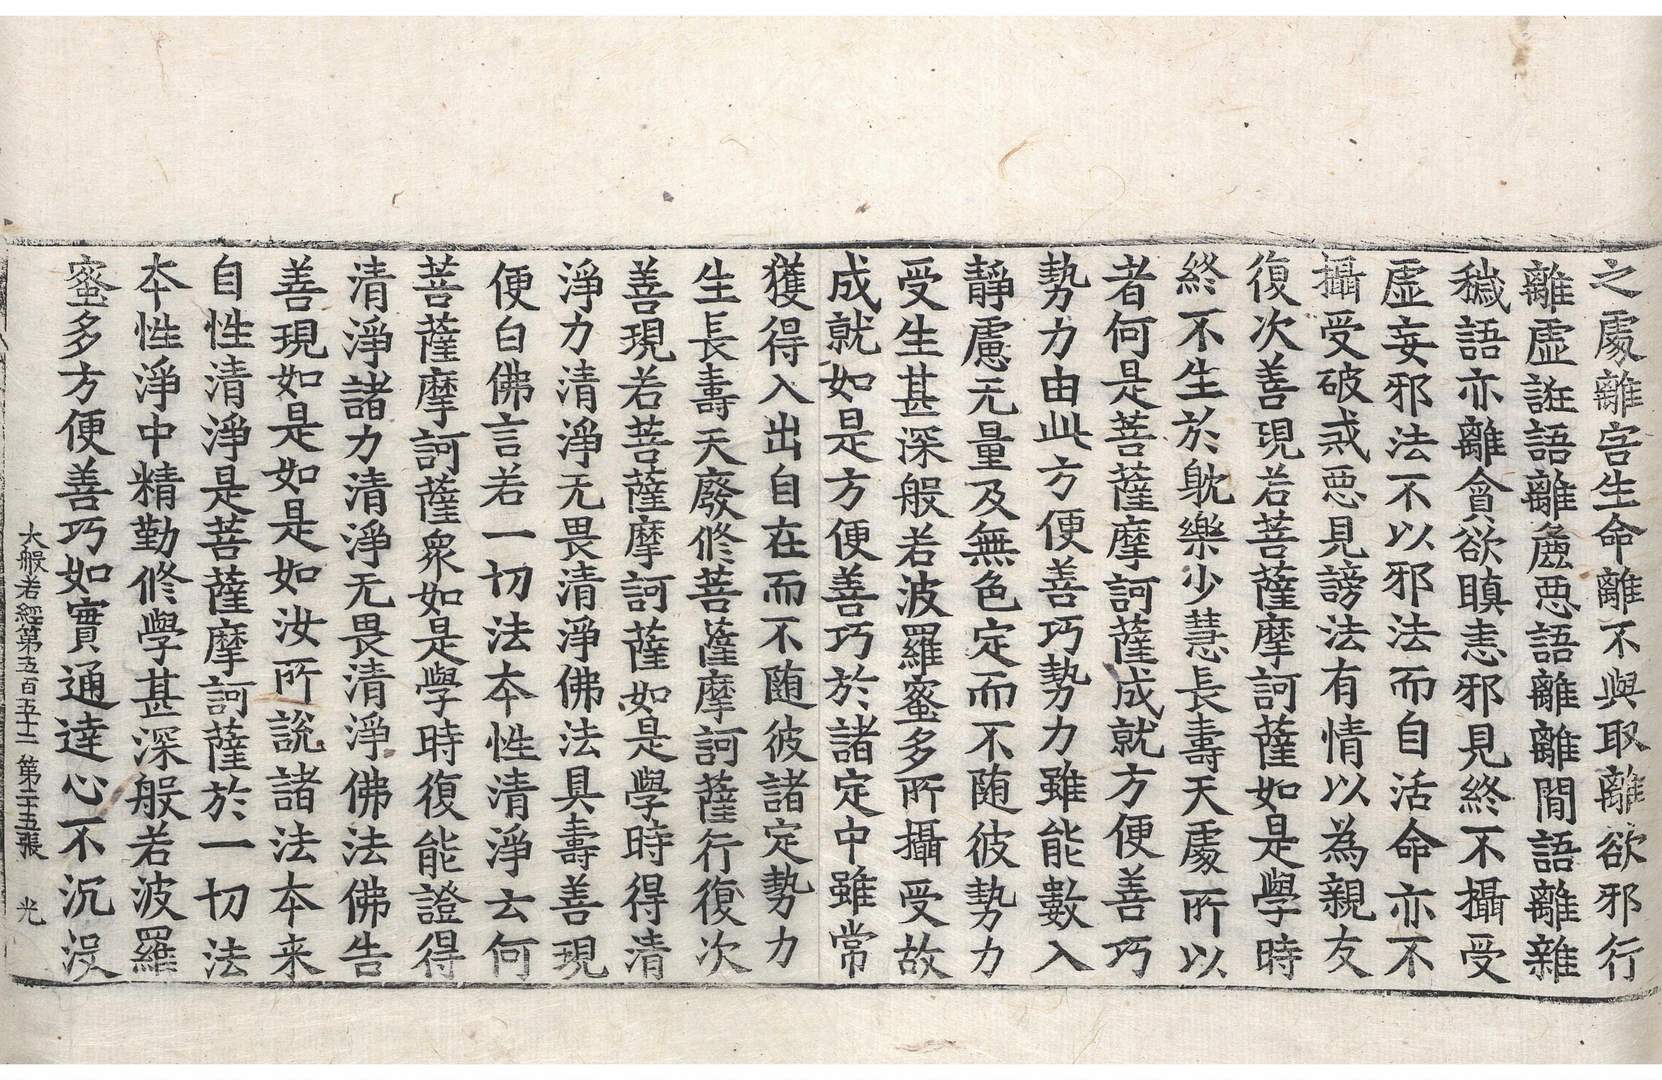 之處離害生命離不與取離欲邪行
離虛誑語離麁惡語離離間語離雜
穢語亦離貪欲瞋恚邪見終不攝受
虛妄邪法不以邪法而自活命亦不
攝受破戒惡見謗法有情以為親友
復次善現若菩薩摩訶薩如是學時
終不生於躭樂少慧長壽天處所以
者何是菩薩摩訶薩成就方便善巧
勢力由此方便善巧勢力雖能數入
靜慮无量及無色定而不随彼勢力
受生甚深般若波羅蜜多所攝受故
成就如是方便善巧於諸定中雖常
獲得入出自在而不随彼諸定勢力
生長壽天廢修菩薩摩訶薩行復次
善現若菩薩摩訶薩如是學時得清
淨力清淨无畏清淨佛法具壽善現
便白佛言若一切法本性清淨云何
菩薩摩訶薩衆如是學時復能證得
清淨諸力清淨无畏清淨佛法佛告
善現如是如是如汝所說諸法本来
自性清淨是菩薩摩訶薩於一切法
本性淨中精勤修學甚深般若波羅
蜜多方便善巧如實通達心不沉没
大般若經第五百五十二 第二十五張 光